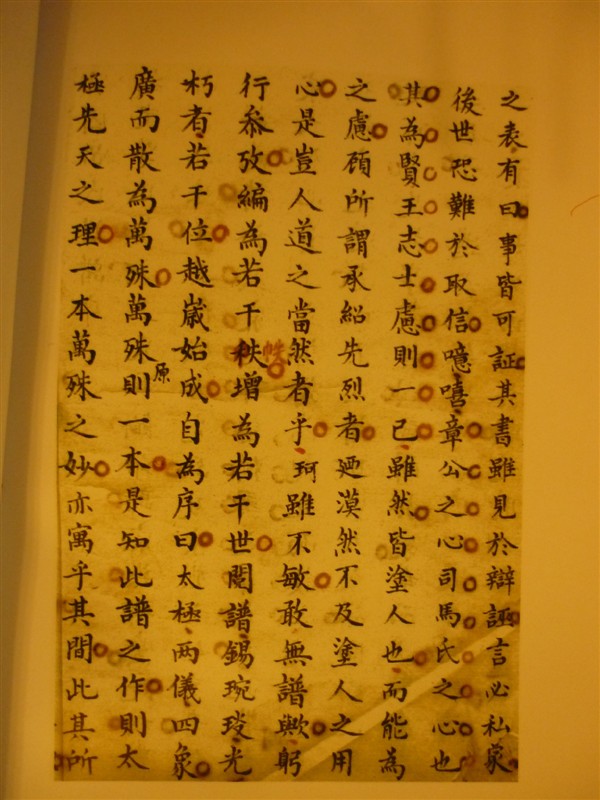 之表有曰事皆可証其書雖見於辯誣言必私家
後世恐難於取信噫嘻章公之心司馬氏之心也
其為賢王志士慮則一已雖然皆塗人也而能為
之慮顧所謂承紹先烈者廼漠然不及塗人之用
心是豈人道之當然者乎珂雖不敏敢無譜歟躬
帙
行叅攷編為若干秩增為若干世閱譜錫琬琰光
朽者若干位越歲始成自為序曰太極両儀四象
原
廣而散為萬殊萬殊則一本是知此譜之作則太
極先天之理一本萬殊之妙亦寓乎其間此其所